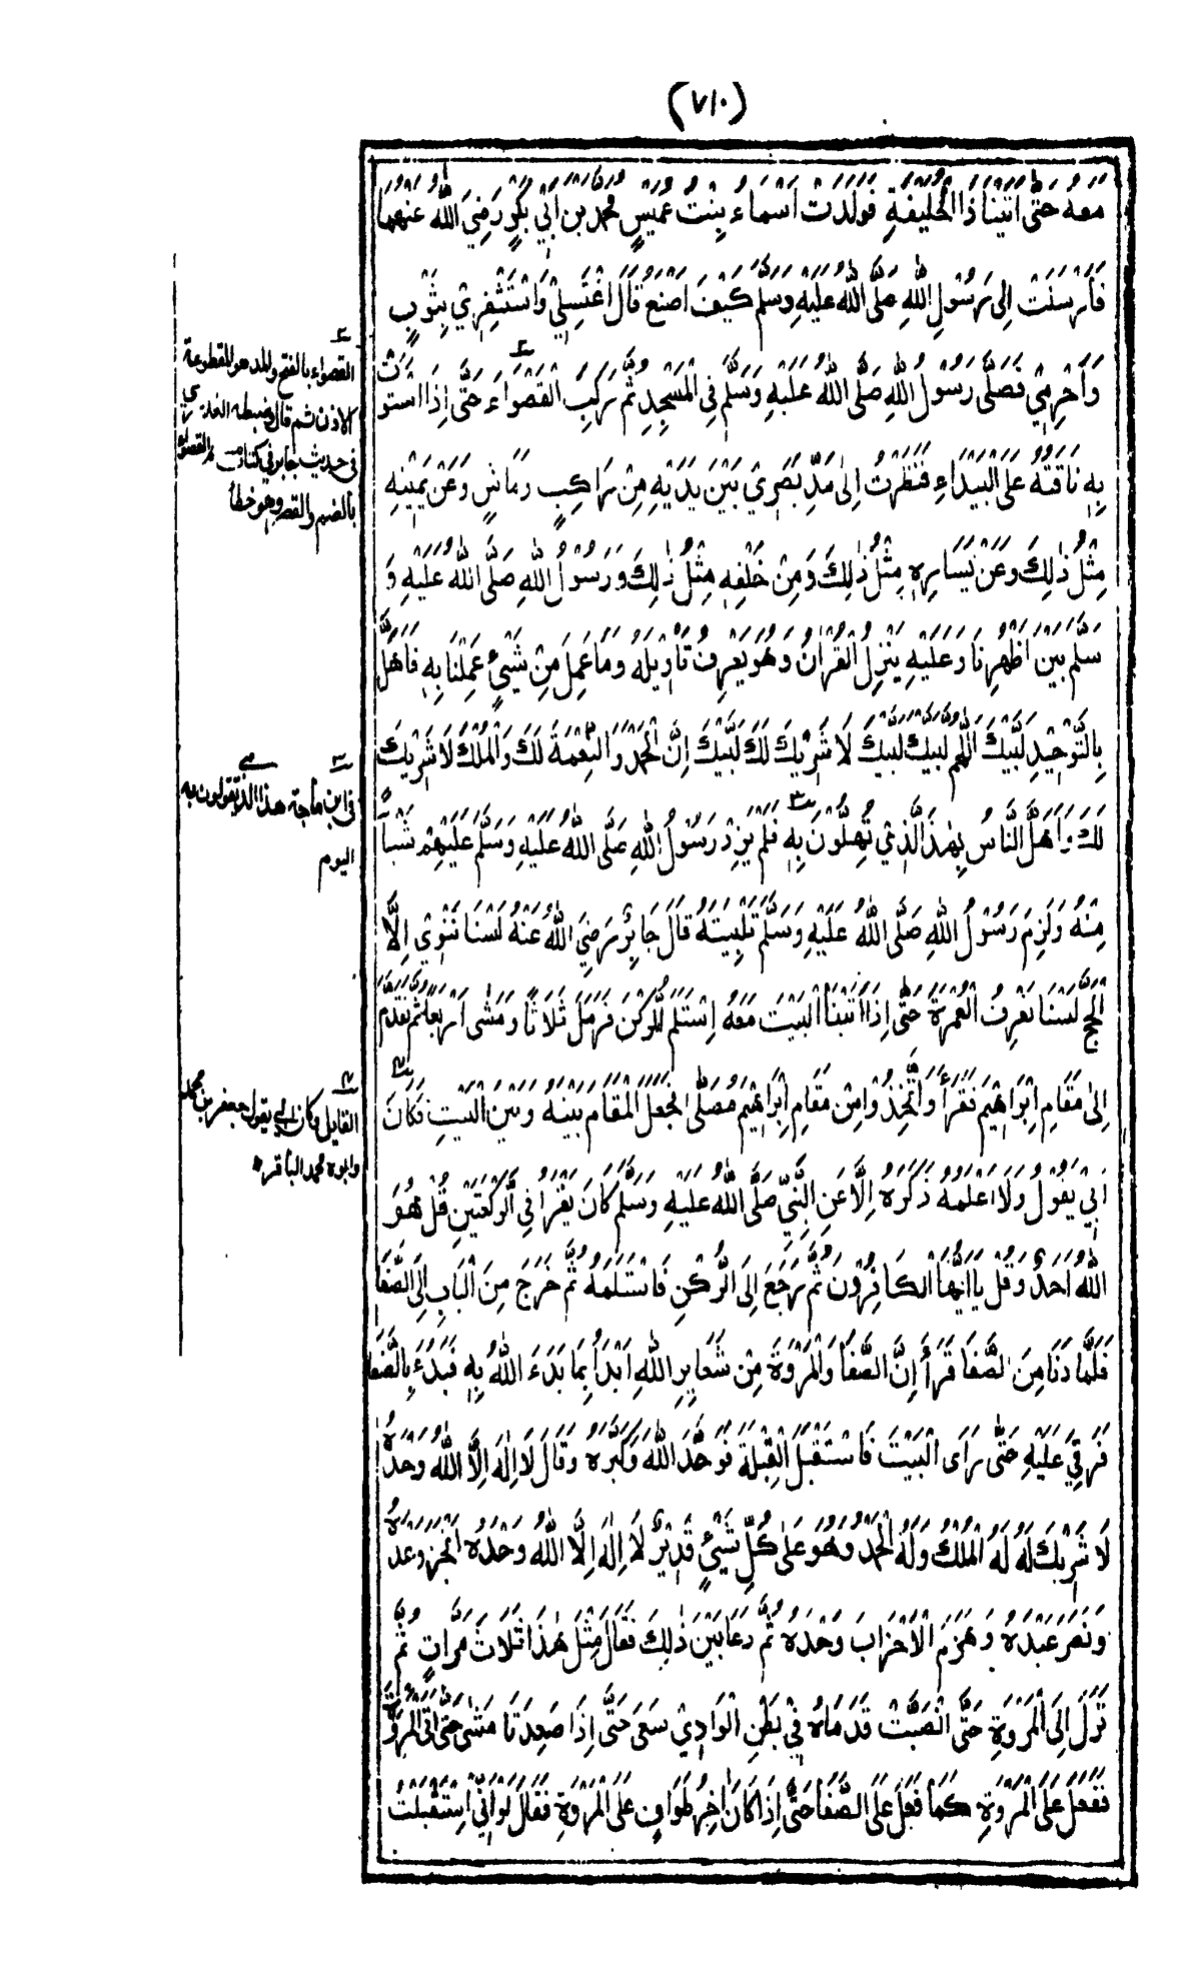 (٧١٠)
مَعَهُ حَتَّى اَتَيْنَا ذَا الْحُلَيْفَةِ فَوَلَدَتْ اَسْمَاءُ بِنْتُ عُمَيْسٍ مُحَمَّدَ بْنَ اَبِيْ بَكْرٍ رَضِيَ اللّٰهُ عَنْهُمَا
فَاَرْسَلَتْ اِلٰى رَسُوْلِ اللّٰهِ صَلَّى اللّٰهُ عَلَيْهِ وَسَلَّمَ كَيْفَ اَصْنَعُ قَالَ اغْتَسِلِيْ وَاسْتَثْفِرِيْ بِثَوْبٍ
وَاَحْرِمِيْ فَصَلَّى رَسُوْلُ اللّٰهِ صَلَّى اللّٰهُ عَلَيْهِ وَسَلَّمَ فِي الْمَسْجِدِ ثُمَّ رَكِبَ الْقَصْوَاءَ حَتَّى اِذَا اسْتَوَتْ
بِهِ نَاقَتُهُ عَلَى الْبَيْدَاءِ فَنَظَرْتُ اِلٰى مَدِّ بَصَرِيْ بَيْنَ يَدَيْهِ مِنْ رَاكِبٍ وَمَاشٍ وَعَنْ يَمِيْنِهِ
مِثْلُ ذٰلِكَ وَعَنْ يَسَارِهِ مِثْلُ ذٰلِكَ وَمِنْ خَلْفِهِ مِثْلُ ذٰلِكَ وَرَسُوْلُ اللّٰهِ صَلَّى اللّٰهُ عَلَيْهِ وَ
سَلَّمَ بَيْنَ اَظْهُرِنَا وَعَلَيْهِ يَنْزِلُ الْقُرْاٰنُ وَهُوَ يَعْرِفُ تَأْوِيْلَهُ وَمَا عَمِلَ مِنْ شَيْئٍ عَمِلْنَا بِهِ فَاَهَلَّ
بِالتَّوْحِيْدِ لَبَّيْكَ اَللّٰهُمَّ لَبَّيْكَ لَبَّيْكَ لَا شَرِيْكَ لَكَ لَبَّيْكَ اِنَّ الْحَمْدَ وَالنِّعْمَةَ لَكَ وَالْمُلْكَ لَا شَرِيْكَ
لَكَ وَاَهَلَّ النَّاسُ بِهٰذَا الَّذِيْ يُهِلُّوْنَ بِهِ فَلَمْ يَزِدْ رَسُوْلُ اللّٰهِ صَلَّى اللّٰهُ عَلَيْهِ وَسَلَّمَ عَلَيْهِمْ شَيْأً
مِنْهُ وَلَزِمَ رَسُوْلُ اللّٰهِ صَلَّى اللّٰهُ عَلَيْهِ وَسَلَّمَ تَلْبِيَتَهُ قَالَ جَابِرٌ رَضِيَ اللّٰهُ عَنْهُ لَسْنَا نَنْوِيْ اِلَّا
الْحَجَّ لَسْنَا نَعْرِفُ الْعُمْرَةَ حَتَّى اِذَا اَتَيْنَا الْبَيْتَ مَعَهُ اِسْتَلَمَ الرُّكْنَ فَرَمَلَ ثَلَاثًا وَمَشٰى اَرْبَعًا ثُمَّ تَقَدَّمَ
اِلٰى مَقَامِ اِبْرَاهِيْمَ فَقَرَأَ وَاتَّخِذُوْا مِنْ مَقَامِ اِبْرَاهِيْمَ مُصَلًّى فَجَعَلَ الْمَقَامَ بَيْنَهُ وَبَيْنَ الْبَيْتِ فَكَانَ
اَبِيْ يَقُوْلُ وَلَا اَعْلَمُهُ ذَكَرَهُ اِلَّا عَنِ النَّبِيِّ صَلَّى اللّٰهُ عَلَيْهِ وَسَلَّمَ كَانَ يَقْرَأُ فِي الرَّكْعَتَيْنِ قُلْ هُوَ
اللّٰهُ اَحَدٌ وَقُلْ يَا اَيُّهَا الْكَافِرُوْنَ ثُمَّ رَجَعَ اِلَى الرُّكْنِ فَاسْتَلَمَهُ ثُمَّ خَرَجَ مِنَ الْبَابِ اِلَى الصَّفَا
فَلَمَّا دَنَا مِنَ الصَّفَا قَرَأَ اِنَّ الصَّفَا وَالْمَرْوَةَ مِنْ شَعَايِرِ اللّٰهِ اَبْدَأُ بِمَا بَدَءَ اللّٰهُ بِهِ فَبَدَءَ بِالصَّفَا
فَرَقِيَ عَلَيْهِ حَتّٰى رَاَى الْبَيْتَ فَاسْتَقْبَلَ الْقِبْلَةَ فَوَحَّدَ اللّٰهَ وَكَبَّرَهُ وَقَالَ لَا اِلٰهَ اِلَّا اللّٰهُ وَحْدَهُ
لَا شَرِيْكَ لَهُ لَهُ الْمُلْكُ وَلَهُ الْحَمْدُ وَهُوَ عَلٰى كُلِّ شَيْئٍ قَدِيْرٌ لَا اِلٰهَ اِلَّا اللّٰهُ وَحْدَهُ اَنْجَزَ وَعْدَهُ
وَنَصَرَ عَبْدَهُ وَهَزَمَ الْاَحْزَابَ وَحْدَهُ ثُمَّ دَعَا بَيْنَ ذٰلِكَ فَقَالَ مِثْلَ هٰذَا ثَلَاثَ مَرَّاتٍ ثُمَّ
نَزَلَ اِلَى الْمَرْوَةِ حَتَّى انْصَبَّتْ قَدَمَاهُ فِيْ بَطْنِ الْوَادِيْ سَعٰى حَتَّى اِذَا صَعِدَتَا مَشٰى حَتّٰى اَتَى الْمَرْوَةَ
فَفَعَلَ عَلَى الْمَرْوَةِ كَمَا فَعَلَ عَلَى الصَّفَا حَتّٰى اِذَا كَانَ اٰخِرُ طَوَافٍ عَلَى الْمَرْوَةِ فَقَالَ لَوْ اَنِّيْ اسْتَقْبَلْتُ
٢
القصواء بالفتح والمد هو المقطوعة
الاذن ثم قال وضبطه العذري
في حديث جابر في كتاب القصوٰى
بالضم والقصر وهو خطأ
٣
في ابن ماجة هذا الذي يقولون به
اليوم
٤
القايل وكان ابي يقول جعفر بن محمد
وابوه محمد الباقر